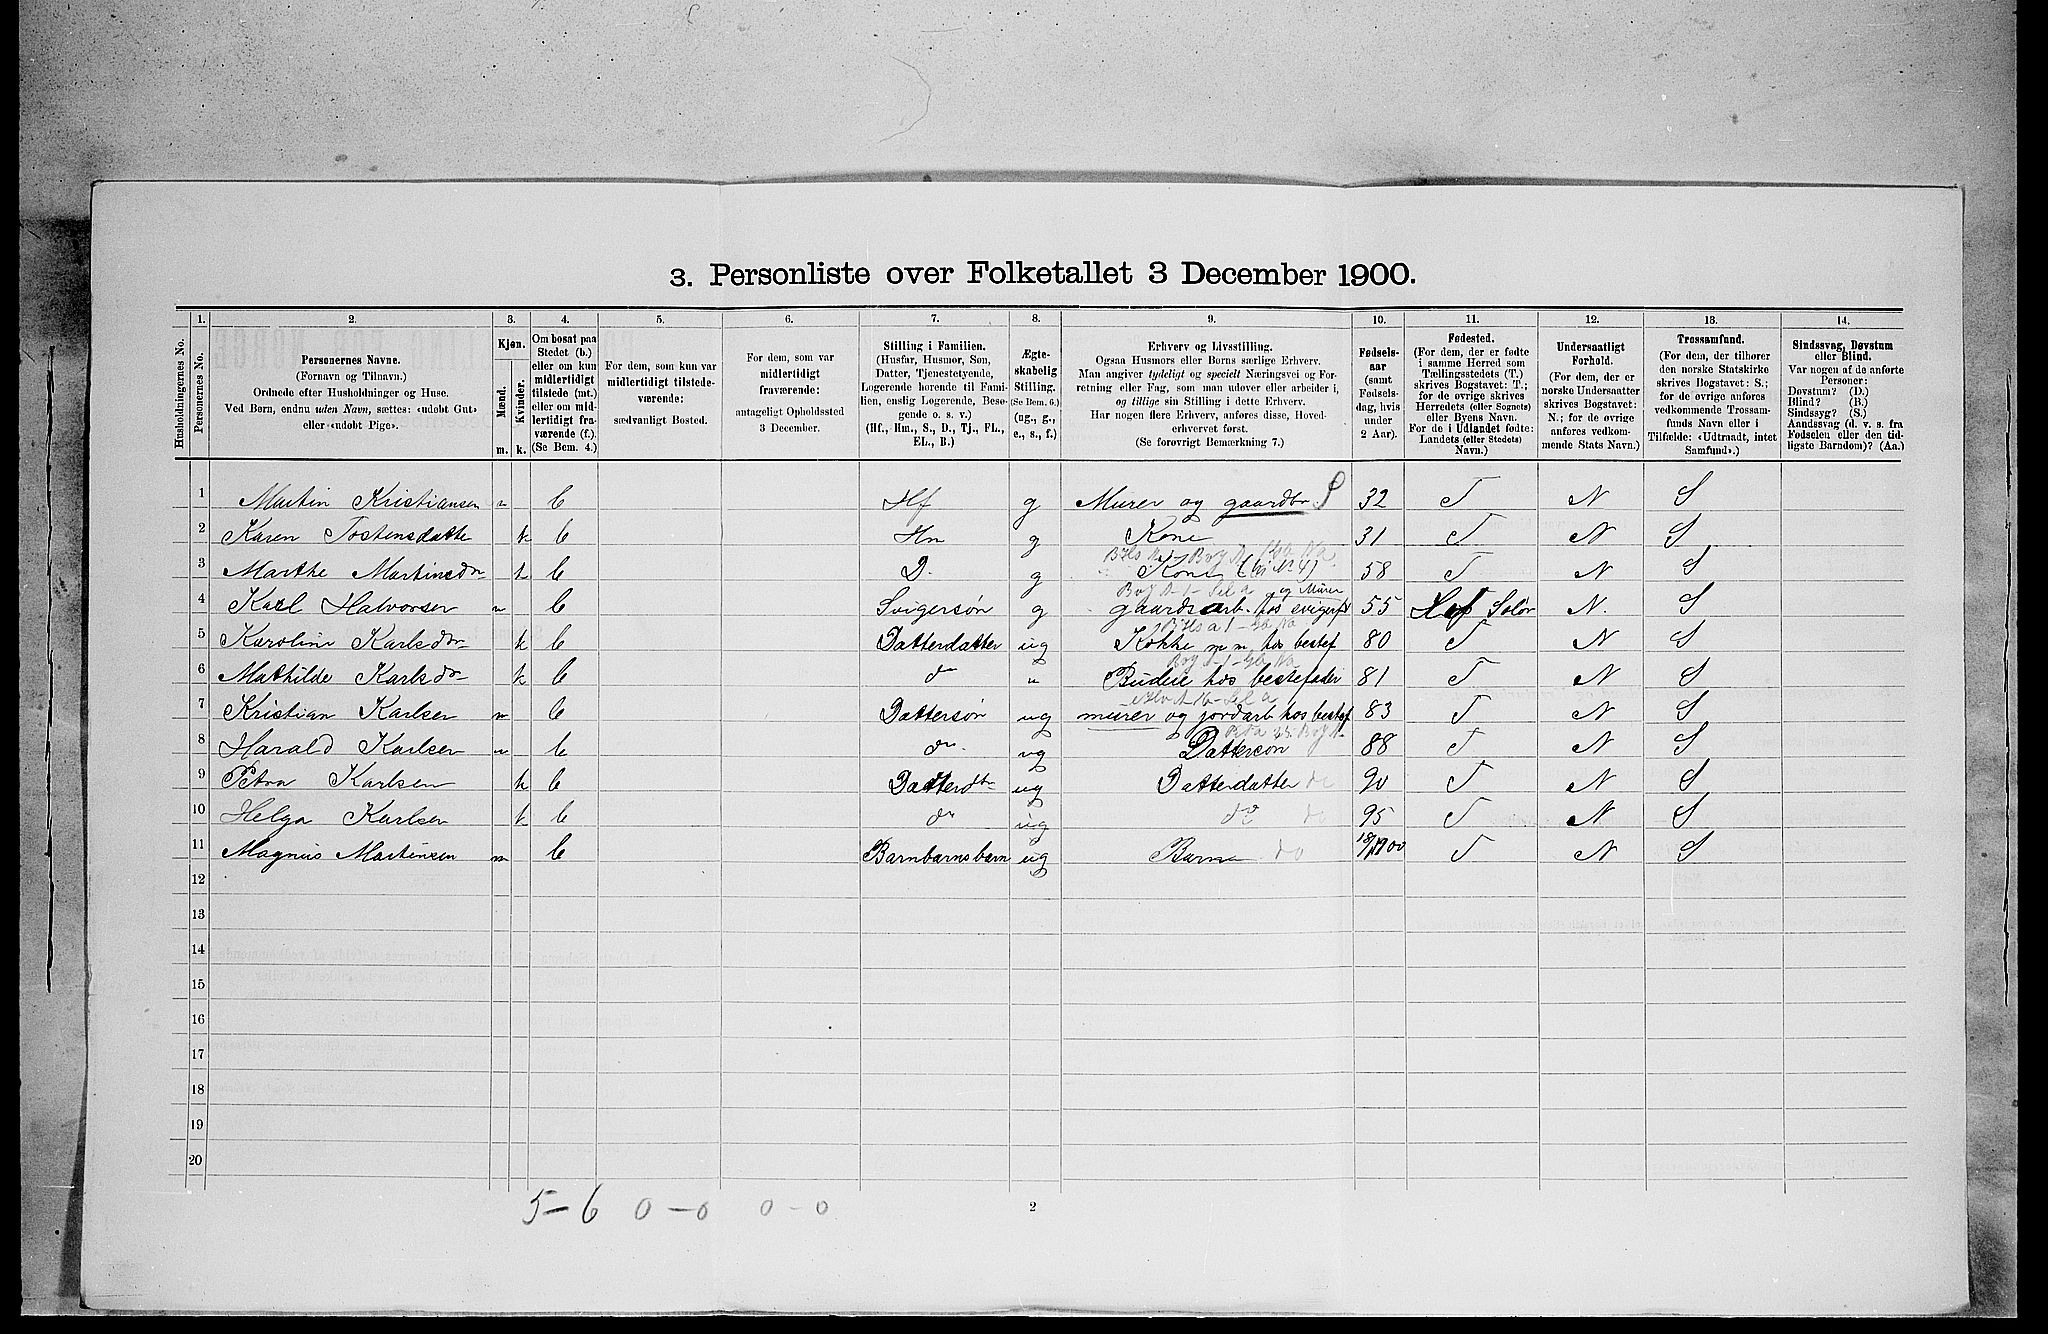 3. Personliste over Folketallet 3 December 1900.
1. 2. 3. 4. 5. 6. 7. 8. 9. 10. 11. 12. 13. 14.
Husholdningernes No.
Personernes No.
Personernes Navne.
(Fornavn og Tilnavn.)
Ordnede efter Husholdninger og Huse.
Ved Børn, endnu uden Navn, sættes: «udøbt Gut»
eller «udøbt Pige».
Kjøn.
Mænd.
Kvinder.
m. k.
Om bosat paa
Stedet (b.)
eller om kun
midlertidigt
tilstede (mt.)
eller om mid-
lertidigt fra-
værende (f.).
(Se Bem. 4.)
For dem, som kun var
midlertidigt tilstede-
værende:
sædvanligt Bosted.
For dem, som var
midlertidigt
fraværende:
antageligt Opholdssted
3 December.
Stilling i Familien.
(Husfar, Husmor, Søn,
Datter, Tjenestetyende,
Logerende hørende til Fami-
lien, enslig Logerende, Besø-
gende o. s. v.)
(Hf., Hm., S., D., Tj., FL.,
EL., B.)
Ægte-
skabelig
Stilling.
(Se Bem. 6.)
(ug., g.,
e., s., f.)
Erhverv og Livsstilling.
Ogsaa Husmors eller Børns særlige Erhverv.
Man angiver tydeligt og specielt Næringsvei og For-
retning eller Fag, som man udøver eller arbeider i,
og tillige sin Stilling i dette Erhverv.
Har nogen flere Erhverv, anføres disse, Hoved-
erhvervet først.
(Se forøvrigt Bemærkning 7.)
Fødsels-
aar
(samt
Fødsels-
dag, hvis
under
2 Aar).
Fødested.
(For dem, der er fødte
i samme Herred som
Tællingsstedets (T.)
skrives Bogstavet: T.;
for de øvrige skrives
Herredets (eller Sognets)
eller Byens Navn.
For de i Udlandet fødte:
Landets (eller Stedets)
Navn.)
Undersaatligt
Forhold.
(For dem, der er
norske Undersaatter
skrives Bogstavet:
N.; for de øvrige
anføres vedkom-
mende Stats Navn.)
Trossamfund.
(For dem, der tilhører
den norske Statskirke
skrives Bogstavet: S.;
for de øvrige anføres
vedkommende Trossam-
funds Navn eller i
Tilfælde: «Udtraadt, intet
Samfund».)
Sindssvag, Døvstum
eller Blind.
Var nogen af de anførte
Personer:
Døvstum? (D.)
Blind? (B.)
Sindssyg? (S.)
Aandssvag (d. v. s. fra
Fødselen eller den tid-
ligste Barndom)? (Aa.)
1 Martin Kristiansen m b Hf g Murer og gaardbr. S 32 T N S
2 Karen Tostensdatte k b Hm g Kone 31 T N S
3 Marthe Martinsdr k b D. g Kone (til No 4) 58 T N S
4 Karl Halvorsen m b Svigersøn g gaardsarb. hos svigerf og Murer 55 Hof Solør N. S
5 Karoline Karlsdr k b Datterdatter ug Kokke m m hos bestef 80 T N S
6 Mathilde Karlsdr k b do " Budeie hos bestefader 81 T N S
7 Kristian Karlsen m b Dattersøn ug murer og jordarb hos bestef 83 T N S
8 Harald Karlsen m b do. ug Dattersøn 88 T N S
9 Petra Karlsen k b Datterdr ug Datterdatter do 90 T N S
10 Helga Karlsen k b do ug do do 95 T N S
11 Magnus Martinsen m b Barnbarnsbarn ug Barn do T N S
12
13
14
15
16
17
18
19
20
5-6 0-0 0-0
2